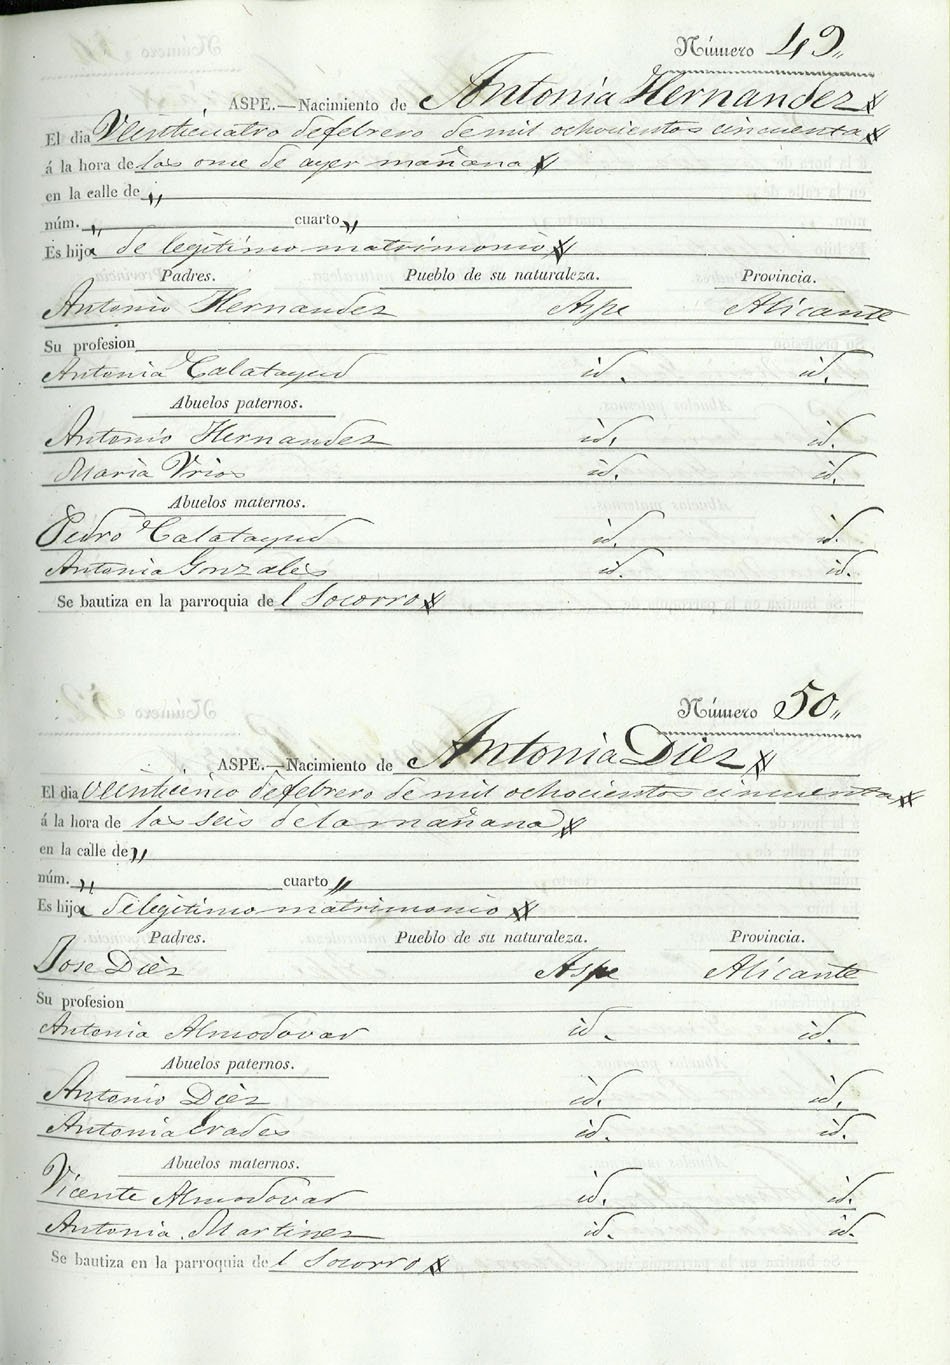 Número 49„
ASPE.—Nacimiento de Antonia Hernandez
El dia Veinticuatro de febrero de mil ochocientos cincuenta
á la hora de las once de ayer mañana
en la calle de „
núm. „ cuarto „
Es hija de legitimo matrimonio
Padres. Pueblo de su naturaleza. Provincia.
Antonio Hernandez Aspe Alicante
Su profesion
Antonia Calatayud id. id.
Abuelos paternos.
Antonio Hernandez id. id.
Maria Vrios id. id.
Abuelos maternos.
Pedro Calatayud id. id.
Antonia Gonzales id. id.
Se bautiza en la parroquia de l Socorro
Número 50„
ASPE.—Nacimiento de Antonia Diez
El dia veinticinco de febrero de mil ochocientos cincuenta
á la hora de las seis de la mañana
en la calle de „
núm. „ cuarto „
Es hija de legitimo matrimonio
Padres. Pueblo de su naturaleza. Provincia.
Jose Diez Aspe Alicante
Su profesion
Antonia Almodovar id. id.
Abuelos paternos.
Antonio Diez id. id.
Antonia Erades id. id.
Abuelos maternos.
Vicente Almodovar id. id.
Antonia Martinez id. id.
Se bautiza en la parroquia de l Socorro